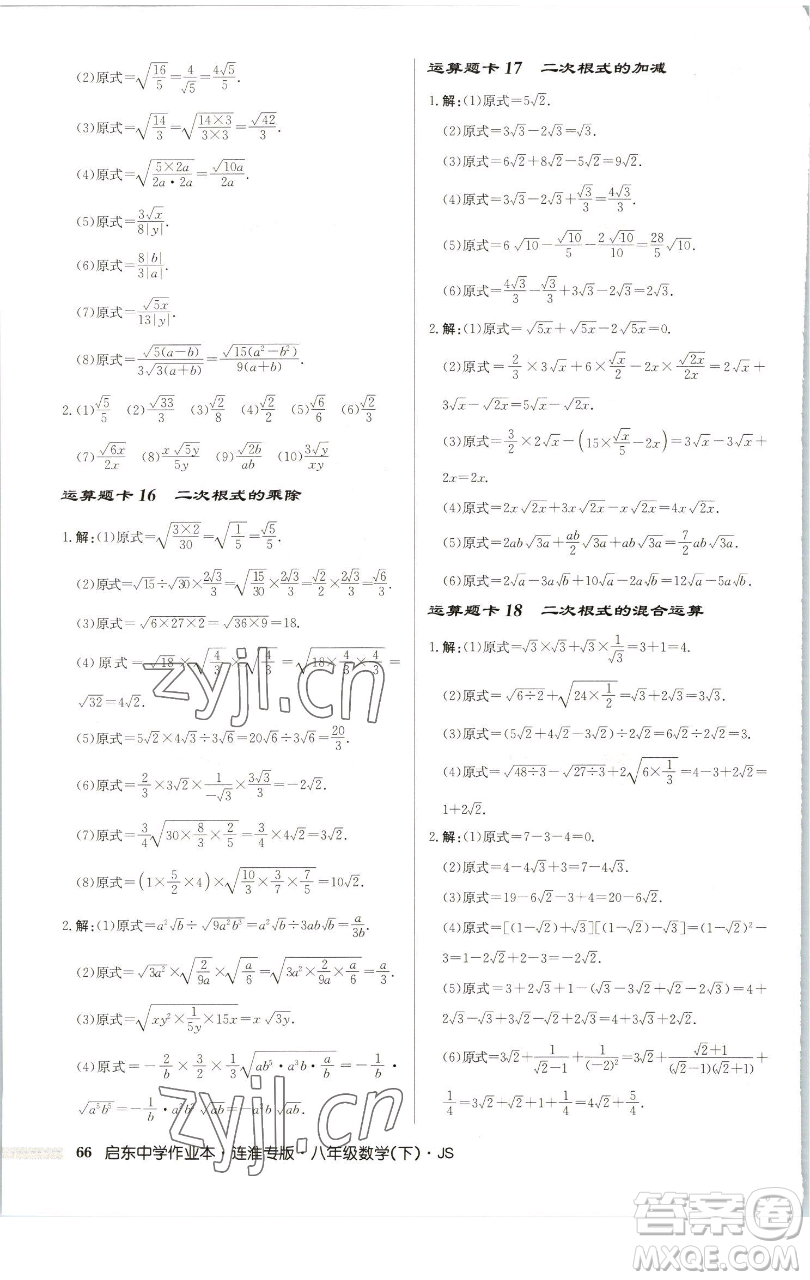 (2)原式=√(16/5)=4/√5=4√5/5.
(3)原式=√(14/3)=√((14×3)/(3×3))=√42/3.
(4)原式=√((5×2a)/(2a·2a))=√(10a)/(2a).
(5)原式=3√x/(8|y|).
(6)原式=8|b|/(3|a|).
(7)原式=√(5x)/(13|y|).
(8)原式=√(5(a-b))/(3√(3(a+b)))=√(15(a²-b²))/(9(a+b)).
2.(1)√5/5 (2)√33/3 (3)√2/8 (4)√2/4 (5)√6/6 (6)√2/3
(7)√(6x)/(2x) (8)x√(5y)/(5y) (9)√(2b)/(ab) (10)3√y/(xy)
运算题卡 16 二次根式的乘除
1.解:(1)原式=√((3×2)/30)=√(1/5)=√5/5.
(2)原式=√15÷√30×2√3/3=√(15/30)×2√3/3=√2/2×2√3/3=√6/3.
(3)原式=√(6×27×2)=√(36×9)=18.
(4)原式=√18×√(4/3)×√(4/3)=√(18×4/3×4/3)=
√32=4√2.
(5)原式=5√2×4√3÷3√6=20√6÷3√6=20/3.
(6)原式=2/3×3√2×1/(-√3)×3√3/3=
(7)原式=3/4√(30×8/3×2/5)=3/4×4√2=3√2.
(8)原式=(1×5/2×4)×√(10/3×3/7×7/5)=10√2.
2.解:(1)原式=a²√b÷√(9a²b³)=a²√b÷3ab√b=a/(3b).
(2)原式=√(3a²)×√(2/(9a))×√(a/6)=√(3a²×2/(9a)×a/6)=a/3.
(3)原式=√(xy²×1/(5y)×15x)=x√(3y).
(4)原式=-2/b×3/2×1/3√(ab⁵·a³b·a/b)=-1/b·
√(a⁵b⁵)=-1/b·a²b²√(ab)=-a²b√(ab).
66 启东中学作业本·连淮专版·八年级数学(下)·JS
运算题卡 17 二次根式的加减
1.解:(1)原式=5√2.
(2)原式=3√3-2√3=√3.
(3)原式=6√2+8√2-5√2=9√2.
(4)原式=3√3-2√3+√3/3=4√3/3.
(5)原式=6√10-√10/5-2√10/10=28/5√10.
(6)原式=4√3/3-√3/3+3√3-2√3=2√3.
2.解:(1)原式=√(5x)+√(5x)-2√(5x)=0.
(2)原式=2/3×3√x+6×√x/2-2x×√(2x)/(2x)=2√x+
3√x-√(2x)=5√x-√(2x).
(3)原式=3/2×2√x-(15×√x/5-2x)=3√x-3√x+
2x=2x.
(4)原式=2x√(2x)+3x√(2x)-x√(2x)=4x√(2x).
(5)原式=2ab√(3a)+ab/2√(3a)+ab√(3a)=7/2ab√(3a).
(6)原式=2√a-3a√b+10√a-2a√b=12√a-5a√b.
运算题卡 18 二次根式的混合运算
1.解:(1)原式=√3×√3+√3×1/√3=3+1=4.
(2)原式=√(6÷2)+√(24×1/2)=√3+2√3=3√3.
(3)原式=(5√2+4√2-3√2)÷2√2=6√2÷2√2=3.
(4)原式=√(48÷3)-√(27÷3)+2√(6×1/3)=4-3+2√2=
1+2√2.
2.解:(1)原式=7-3-4=0.
(2)原式=4-4√3+3=7-4√3.
(3)原式=19-6√2-3+4=20-6√2.
(4)原式=[(1-√2)+√3][(1-√2)-√3]=(1-√2)²-
3=1-2√2+2-3=-2√2.
(5)原式=3+2√3+1+(√3-3√2+√2)÷√2=4+
(6)原式=3√2+1/(√2-1)+1/(-2)²=3√2+(√2+1)/((√2-1)(√2+1))+
1/4=3√2+√2+1+1/4=4√2+5/4.
zyjl.cn
答案圈
MXQE.COM